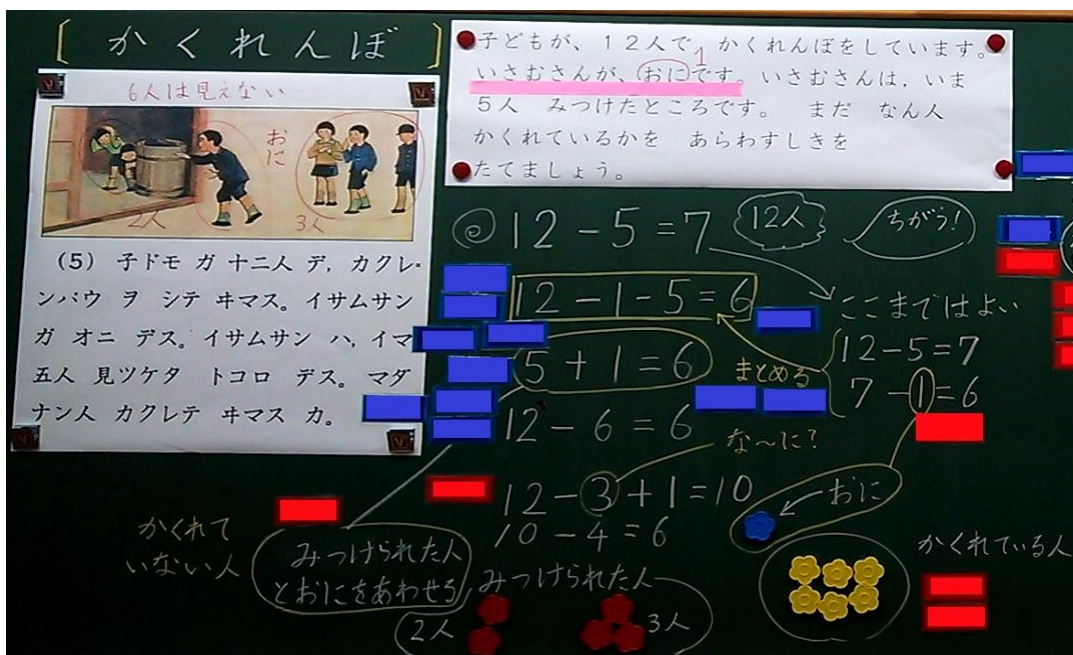 [かくれんぼ]
6人は見えない
おに
2人
3人
(5) 子ドモ ガ 十二人 デ, カクレ
ンバウ ヲ シテ ヰマス。イサムサン
ガ オニ デス。イサムサン ハ, イマ
五人 見ツケタ トコロ デス。マダ
ナン人 カクレテ ヰマス カ。
子どもが、12人で かくれんぼをしています。
1
いさむさんが、おにです。いさむさんは, いま
5人 みつけたところです。 まだ なん人
かくれているかを あらわすしきを
たてましょう。
12-5=7
12人
ちがう!
12-1-5=6
ここまではよい
5+1=6
まとめる
12-5=7
7-1=6
12-6=6
な〜に?
12-3+1=10
10-4=6
おに
かくれて
いない人
みつけられた人
とおにをあわせる
みつけられた人
2人
3人
かくれている人